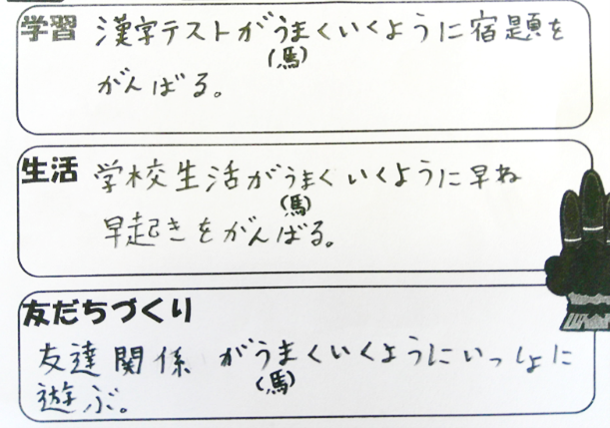 学習 漢字テストがうまくいくように宿題を
(馬)
がんばる。
生活 学校生活がうまくいくように早ね
(馬)
早起きをがんばる。
友だちづくり
友達関係がうまくいくようにいっしょに
(馬)
遊ぶ。